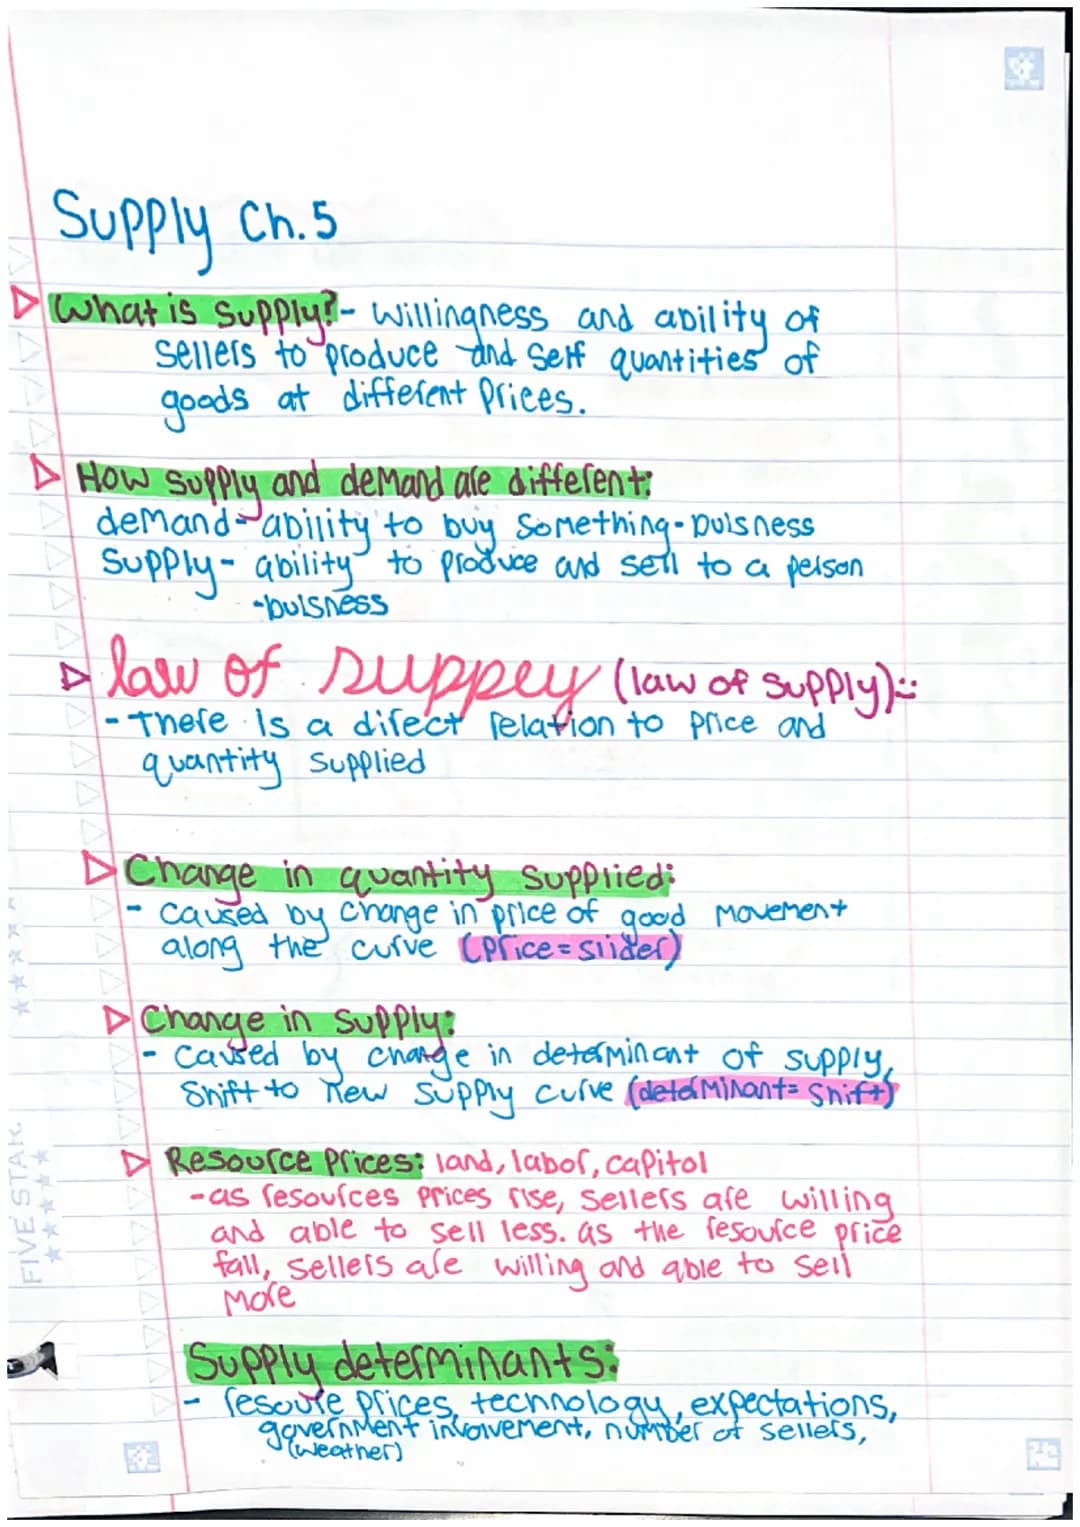 Supply Ch. 5
What is supply? - Willingness and ability of
sellers to produce and sell quantities of
goods at different Prices.
How supply and demand are different:
demand - ability to buy something - buisness
Supply - ability to produce and sell to a person
- buisness
law of suppey (law of supply):
- There is a direct relation to price and
quantity supplied
Change in quantity supplied:
- caused by change in price of good movement
along the curve (price = slider)
Change in supply:
- caused by change in determinant of supply,
Shift to new supply curve (determinant = shift)
Resource Prices: land, labor, capitol
- as resources prices rise, sellers are willing
and able to sell less. as the resource price
fall, sellers are willing and able to sell
more
Supply determinants:
- resoure prices, technology, expectations,
government involvement, number of sellers,
(weather)
FIVE STAR